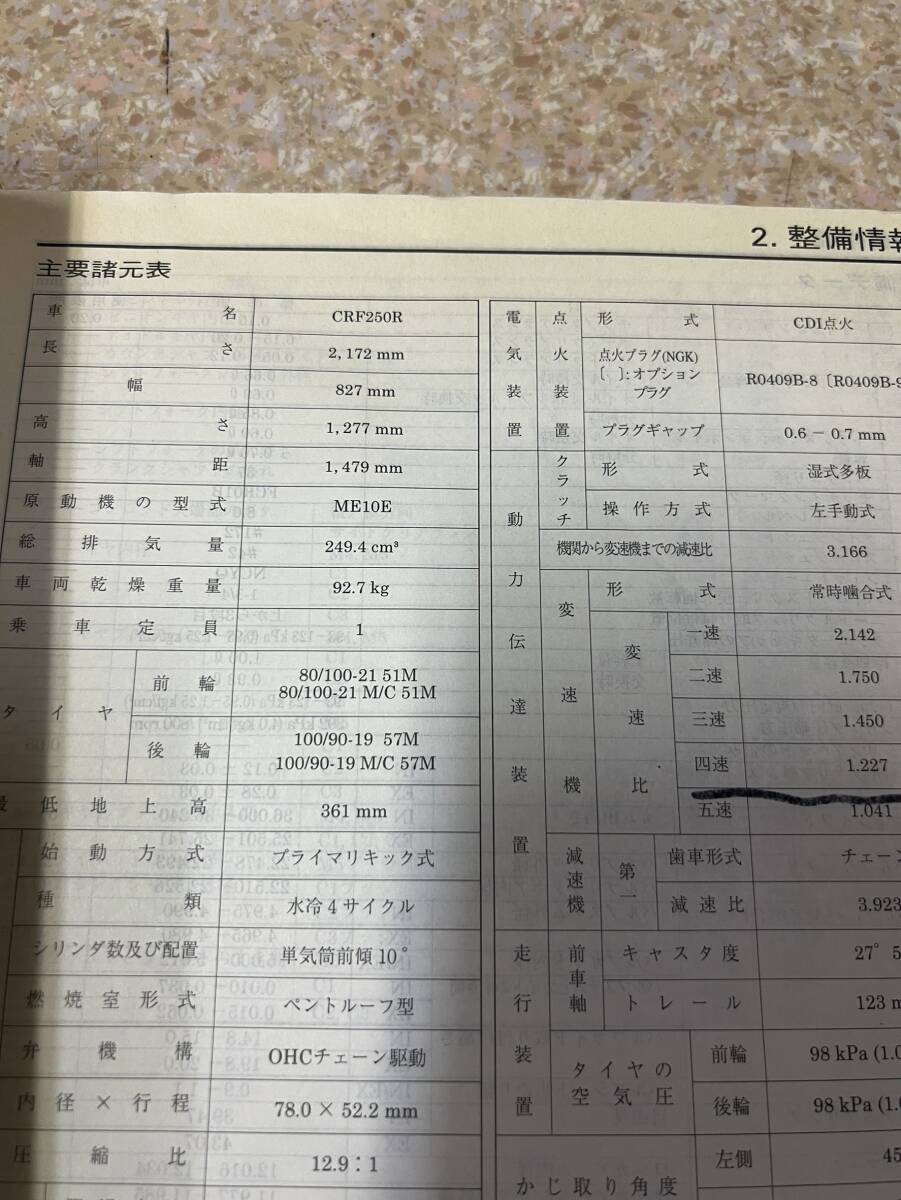 2. 整備情報
主要諸元表
車名 CRF250R
長さ 2,172 mm
幅 827 mm
高さ 1,277 mm
軸距 1,479 mm
原動機の型式 ME10E
総排気量 249.4 cm³
車両乾燥重量 92.7 kg
乗車定員 1
タイヤ 前輪 80/100-21 51M
80/100-21 M/C 51M
後輪 100/90-19 57M
100/90-19 M/C 57M
最低地上高 361 mm
始動方式 プライマリキック式
種類 水冷4サイクル
シリンダ数及び配置 単気筒前傾10°
燃焼室形式 ペントルーフ型
弁機構 OHCチェーン駆動
内径×行程 78.0 × 52.2 mm
圧縮比 12.9：1
電気装置 点火装置 形式 CDI点火
点火プラグ(NGK)
〔 〕：オプション
プラグ
R0409B-8〔R0409B-9
プラグギャップ 0.6 － 0.7 mm
動力伝達装置 クラッチ 形式 湿式多板
操作方式 左手動式
機関から変速機までの減速比 3.166
変速機 形式 常時噛合式
変速比 一速 2.142
二速 1.750
三速 1.450
四速 1.227
五速 1.041
減速機 第二 歯車形式 チェー
減速比 3.923
走行装置 前車軸 キャスタ度 27° 5
トレール 123 m
タイヤの
空気圧
前輪 98 kPa (1.0
後輪 98 kPa (1.0
かじ取り角度 左側 45